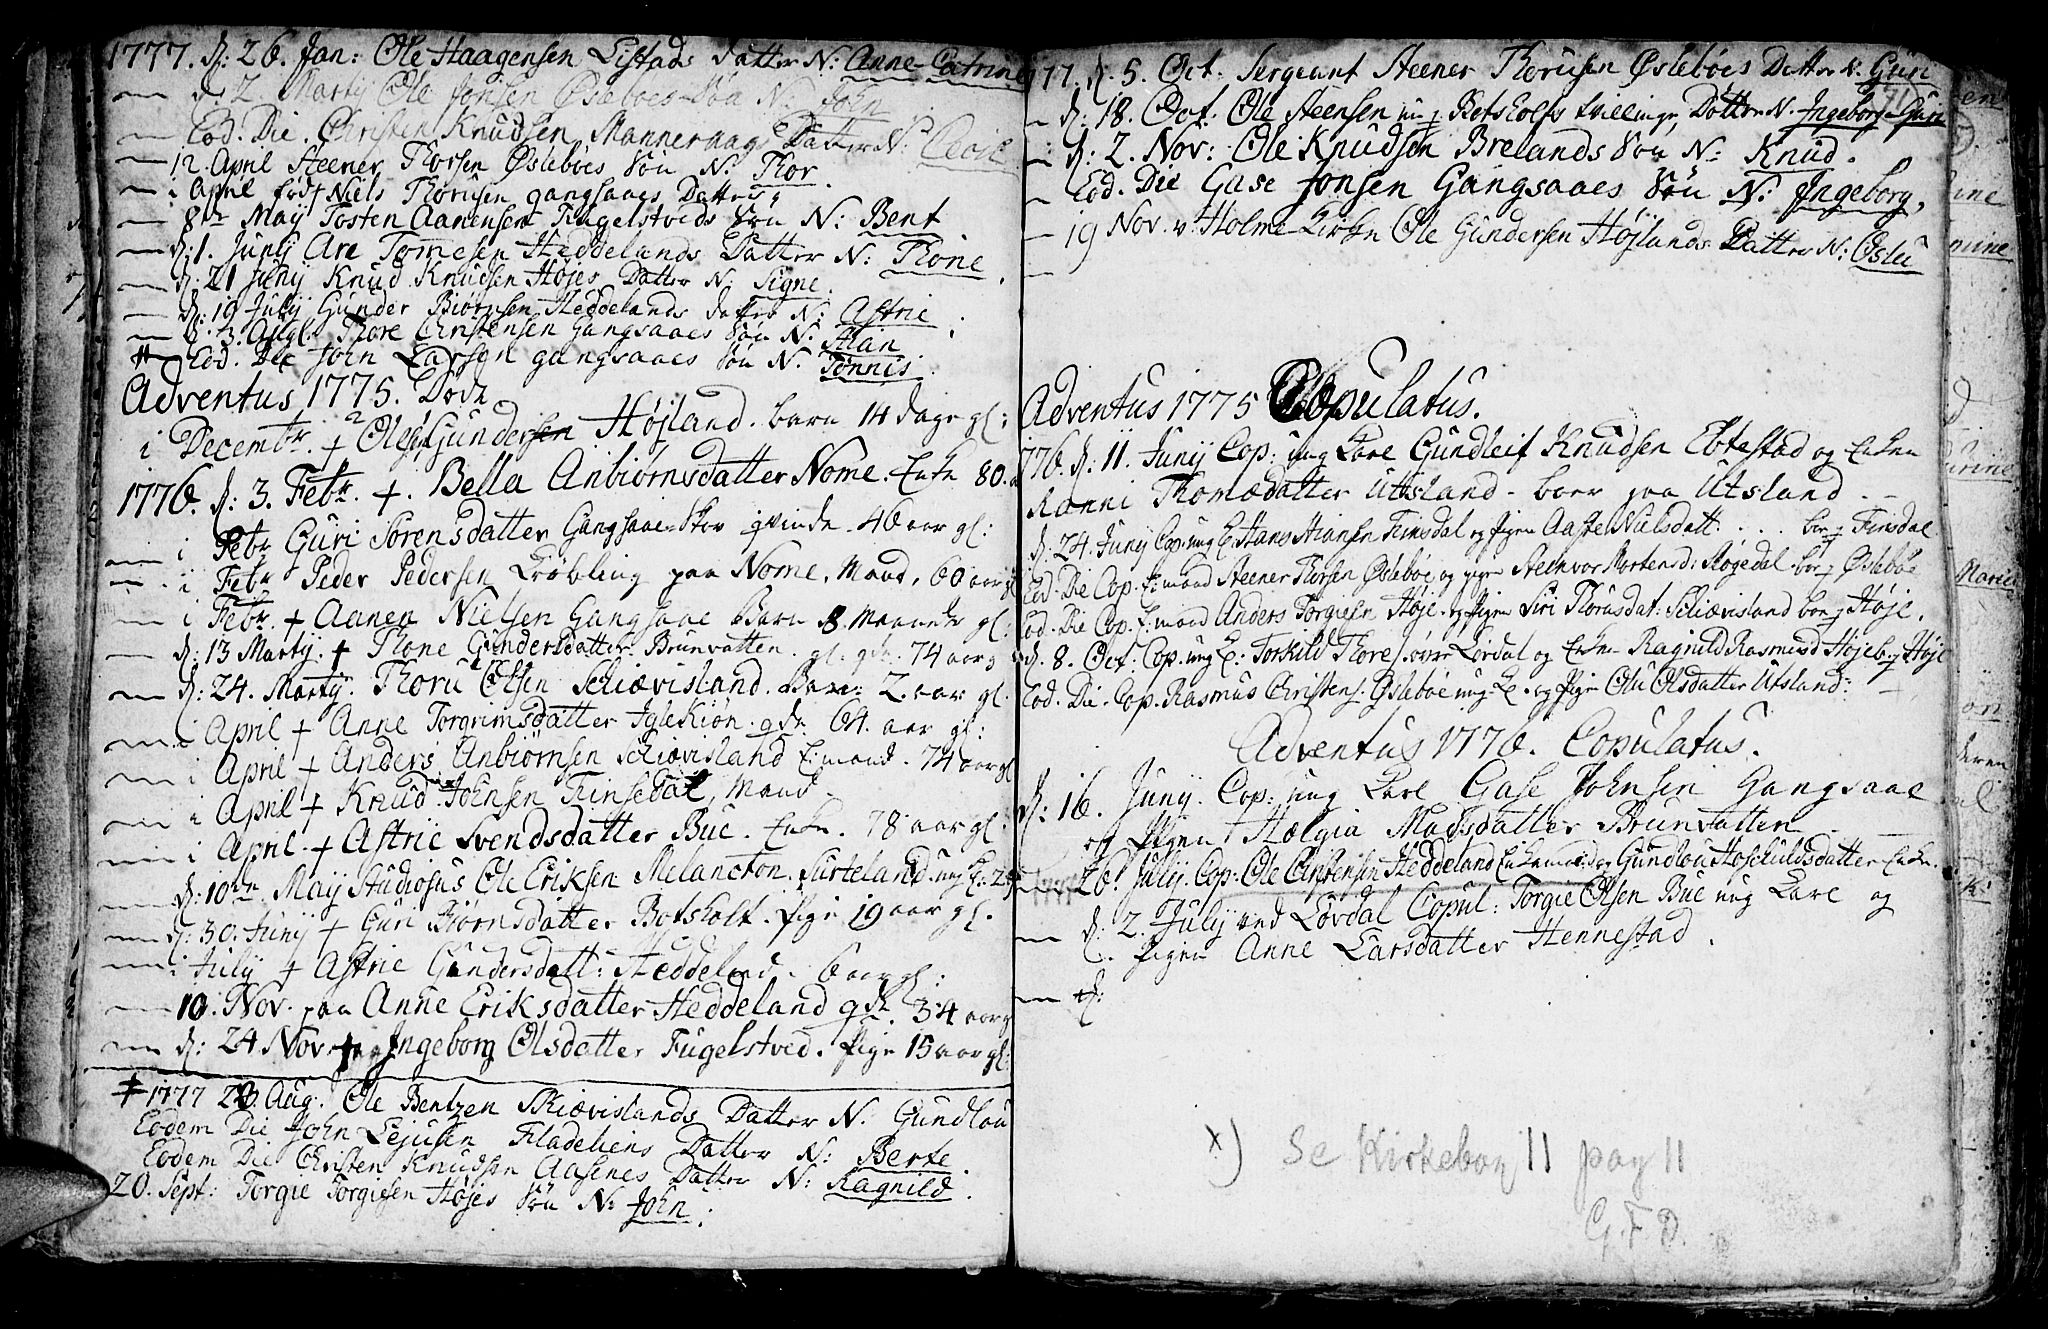 1777. d: 26. Jan: Ole Haagensen Listads Datter N: Anne Catrine
d. 2 Martij Ole Jonsen Øsleboes Søn N: John
Eod. Die. Christen Knudsen Datter N: Cecil
12. April Steener Thorsen Øsleboes Søn N. Thor
i April Niels Thorusen gangsaaes Datter
8de Maij Tosten Aanensen Fugelstveds Søn N: Bent
d: 1. Junij Are Tomesen Heddelands Datter N: Thone
d: 21 Junij Knud Knudsen Højes Datter N: Signe.
d: 19 Julij Gunder Biørnsen Heddelands datter N: Astrie
d. 3. Aug: Thore Christensen Gangsaaes Søn N: Stian
Eod. Die John Larsen gangsaaes Søn N. Tønnis.
Adventus 1775. Døde
i Decembr. + Ole Gundersen Højland. barn 14 dage gl:
1776. d: 3. Febr. +. Bella Anbiørnsdatter Nome. Enke 80.
i Febr Guri Sørensdatter Gangsaae qvinde 46 aar gl:
i Febr Peder Pedersen paa Nome, Mand, 60 aar gl
i Febr. + Aanen Nielsen Gangsaae Barn 8. Maaneder gl:
d: 13 Martij. + Thone Gundersdatter Brunvatten. gl. qde. 74 aar g
d: 24. Martij. Thoru Olsen Schiævisland. Barn 2. aar gl.
i April + Anne Torgrimsdatter Iglekiøn. qde 64. aar gl:
i April + Anders Anbiørnsen Schiævisland Eimand. 74 aar gl
i April + Knud Johnsen Finsedal, Mand.
i April. + Astrie Svendsdatter Bue. Enke. 78 aar gl:
d: 10de Maij Studiosus Ole Eriksen Melancton. ung K: 29
d: 30. Junij + Guri Biørnsdatter Botsholt. Pige 19 aar gl.
i Julij + Astrie Gundersdatt: Heddeland. 6 aar gl:
10. Nov. paa Anne Eriksdatter Heddeland qde. 34 aar g
d: 24 Nov. + Ingeborg Olsdatter Fugelstved. Pige 15 aar gl:
+ 1777 Aug: Ole Bentzen Skiævislands Datter N: Gundlou
Eodem Die John Lejusen Fladeliens Datter N: Berte
Eodem Die Christen Knudsen Aasenes Datter N: Ragnild.
20. Sept: Torgie Torgiesen Højes Søn N: John.
77. d. 5. Oct: Sergeant Steener Thorusen Øsleboes Datter N. Guri
d: 18. Oct: Ole Steensen Botsholts tvillinge Døttre N. Ingeborg Guri
d: 2. Nov: Ole Knudsen Brelands Søn N: Knud.
Eod. Die Gase Jonsen Gangsaaes Søn N: Ingeborg,
19 Nov. v: Holme Kirke Ole Gundersen Højlands Datter N: Oslu
Adventus 1775 Copulatus.
776. d: 11. Junij Cop: ung Karl Gundleif Knudsen Ebtestad og Enken
Ranni Thomædatter Utsland. boer paa Utsland.
d: 24. Junij Cop: ung K. Hans Stiansen Finsdal og pigen Aaste Nielsdatt: . . . bor Finsdal
Eod. Die Cop. E:mand Steener Thorsen Øsleboe og pigen Stenvor Mortensd: Røgedal. bor Øsleboe
Eod. Die Cop. E:mand Anders Torgiesen Høje. og Pigen Siri Thorusdat: Schiævisland bor Høje.
d. 8. Oct. Cop. ung K: Torkild Thores. øvre Lørdal og Enken Ragnild Rasmusd Høje b. Høje
Eod. Die. Cop. Rasmus Christens. Øsleboe ung K. og Pige Olu Olsdatter Utsland:
Adventus 1776. Copulatus.
d: 16. Junij. Cop: ung Karl Gase Johnsen Gangsaae
og Pigen Helgia Madsdatter Brunvatten
26. Julij. Cop: Ole Christensen Heddeland Enkemand og Gundlou Hoschuldsdatter Enke.
d: 2. Julij ved Løvdal Copul: Torgie Olsen Bue ung Karl og
Pigen Anne Larsdatter Hennestad.
d:
x) Se Kirkebog 11 pag 11
G. F. D.